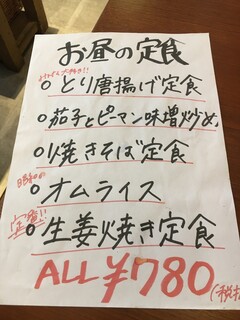 お昼の定食
とり唐揚げ定食
茄子とピーマン味噌炒め
焼きそば定食
昭和の
オムライス
定番!!
生姜焼き定食
ALL ¥780
(税抜